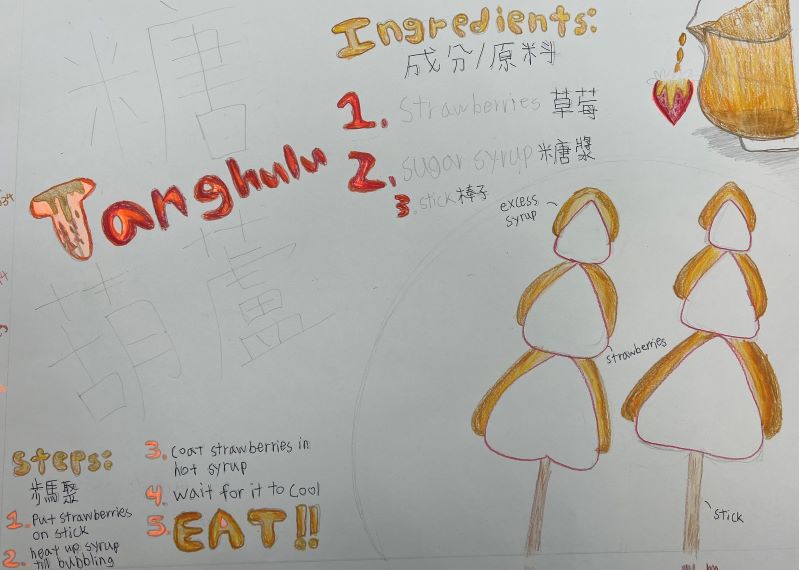 糖
Tanghulu
葫蘆
Ingredients:
成分/原料
1. Strawberries 草莓
2. sugar syrup 糖漿
3. stick 棒子
excess
syrup
strawberries
stick
Steps:
步驟
1. Put strawberries
on stick
2. heat up syrup
till bubbling
3. coat strawberries in
hot syrup
4. wait for it to cool
5. EAT!!